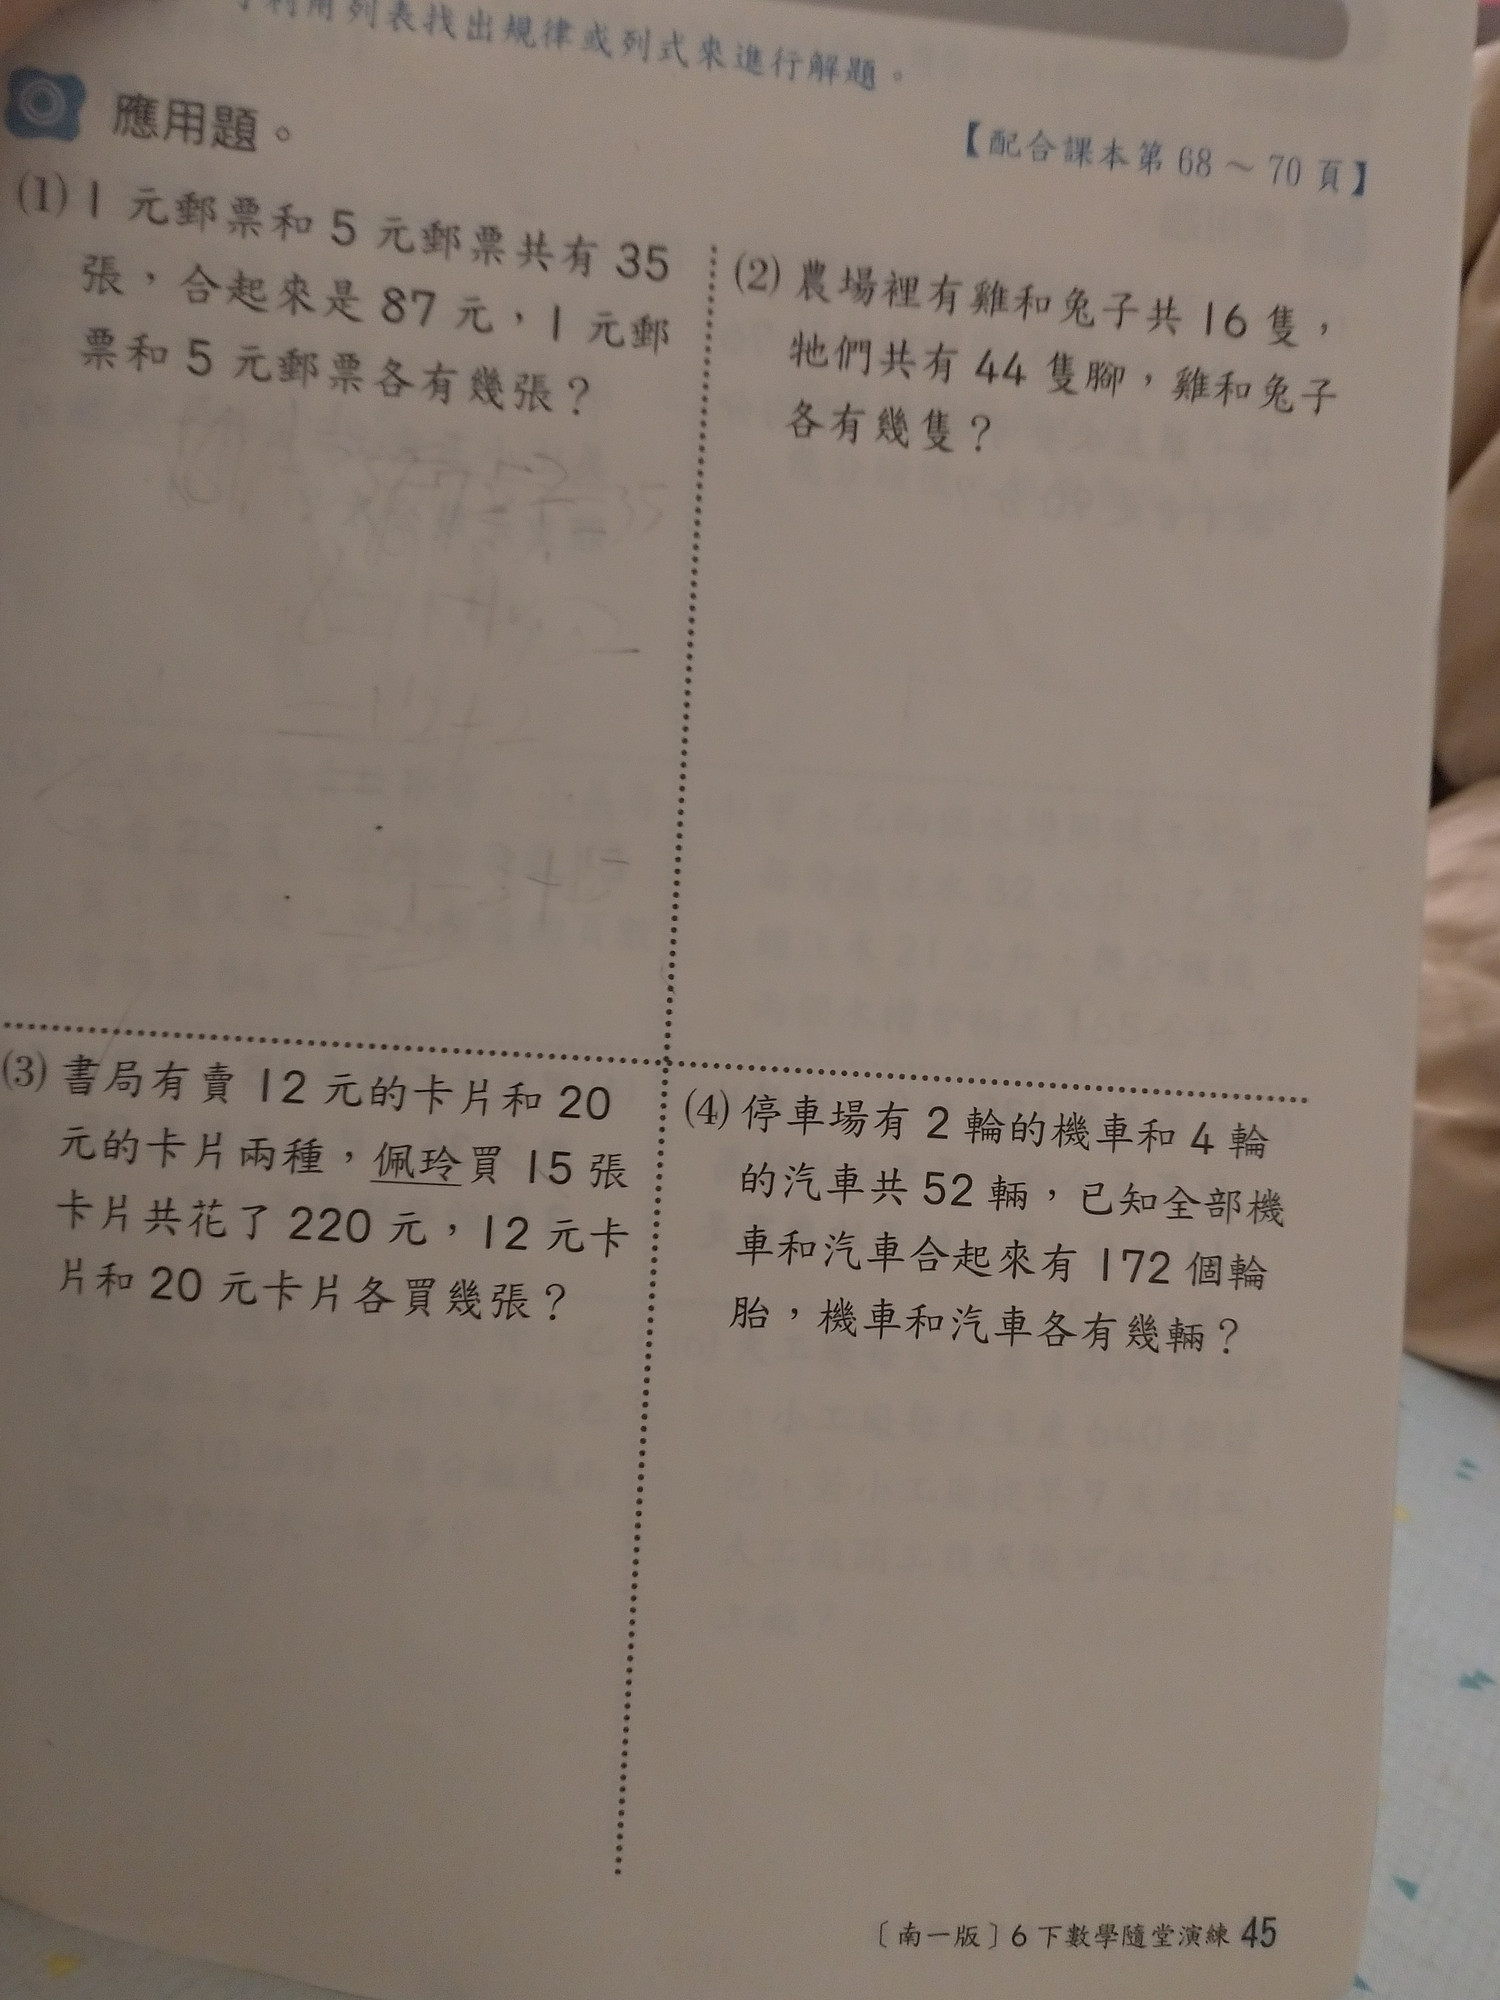 利用列表找出規律或列式來進行解題。
應用題。
【配合課本第 68～70 頁】
(1) 1 元郵票和 5 元郵票共有 35
張，合起來是 87 元，1 元郵
票和 5 元郵票各有幾張？
(2) 農場裡有雞和兔子共 16 隻，
牠們共有 44 隻腳，雞和兔子
各有幾隻？
(3) 書局有賣 12 元的卡片和 20
元的卡片兩種，佩玲買 15 張
卡片共花了 220 元，12 元卡
片和 20 元卡片各買幾張？
(4) 停車場有 2 輪的機車和 4 輪
的汽車共 52 輛，已知全部機
車和汽車合起來有 172 個輪
胎，機車和汽車各有幾輛？
〔南一版〕6 下數學隨堂演練 45